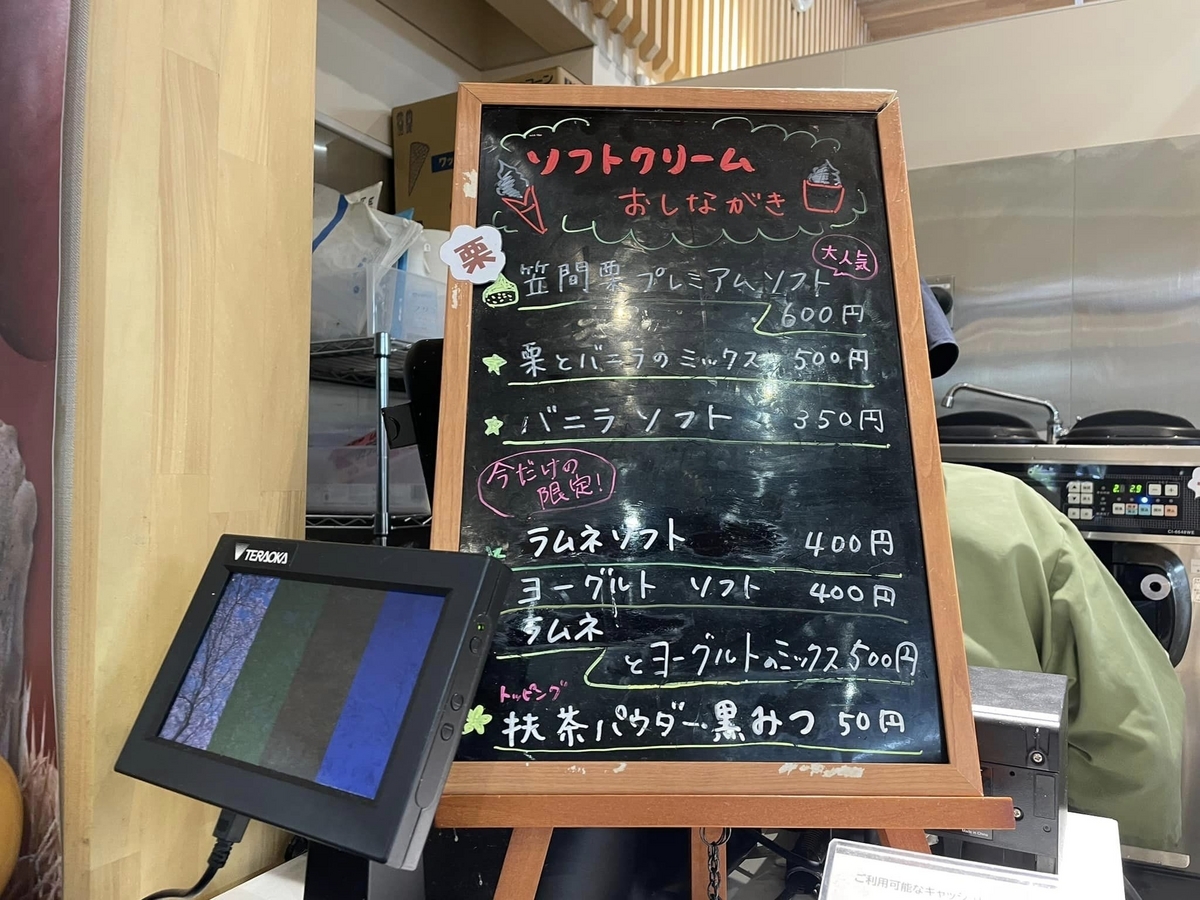 ソフトクリーム
おしながき
大人気
栗
笠間栗プレミアムソフト
600円
栗とバニラのミックス 500円
バニラソフト 350円
今だけの
限定!
ラムネソフト 400円
ヨーグルト ソフト 400円
ラムネ
とヨーグルトのミックス 500円
トッピング
抹茶パウダー・黒みつ 50円
TERAOKA
ご利用可能なキャッシ